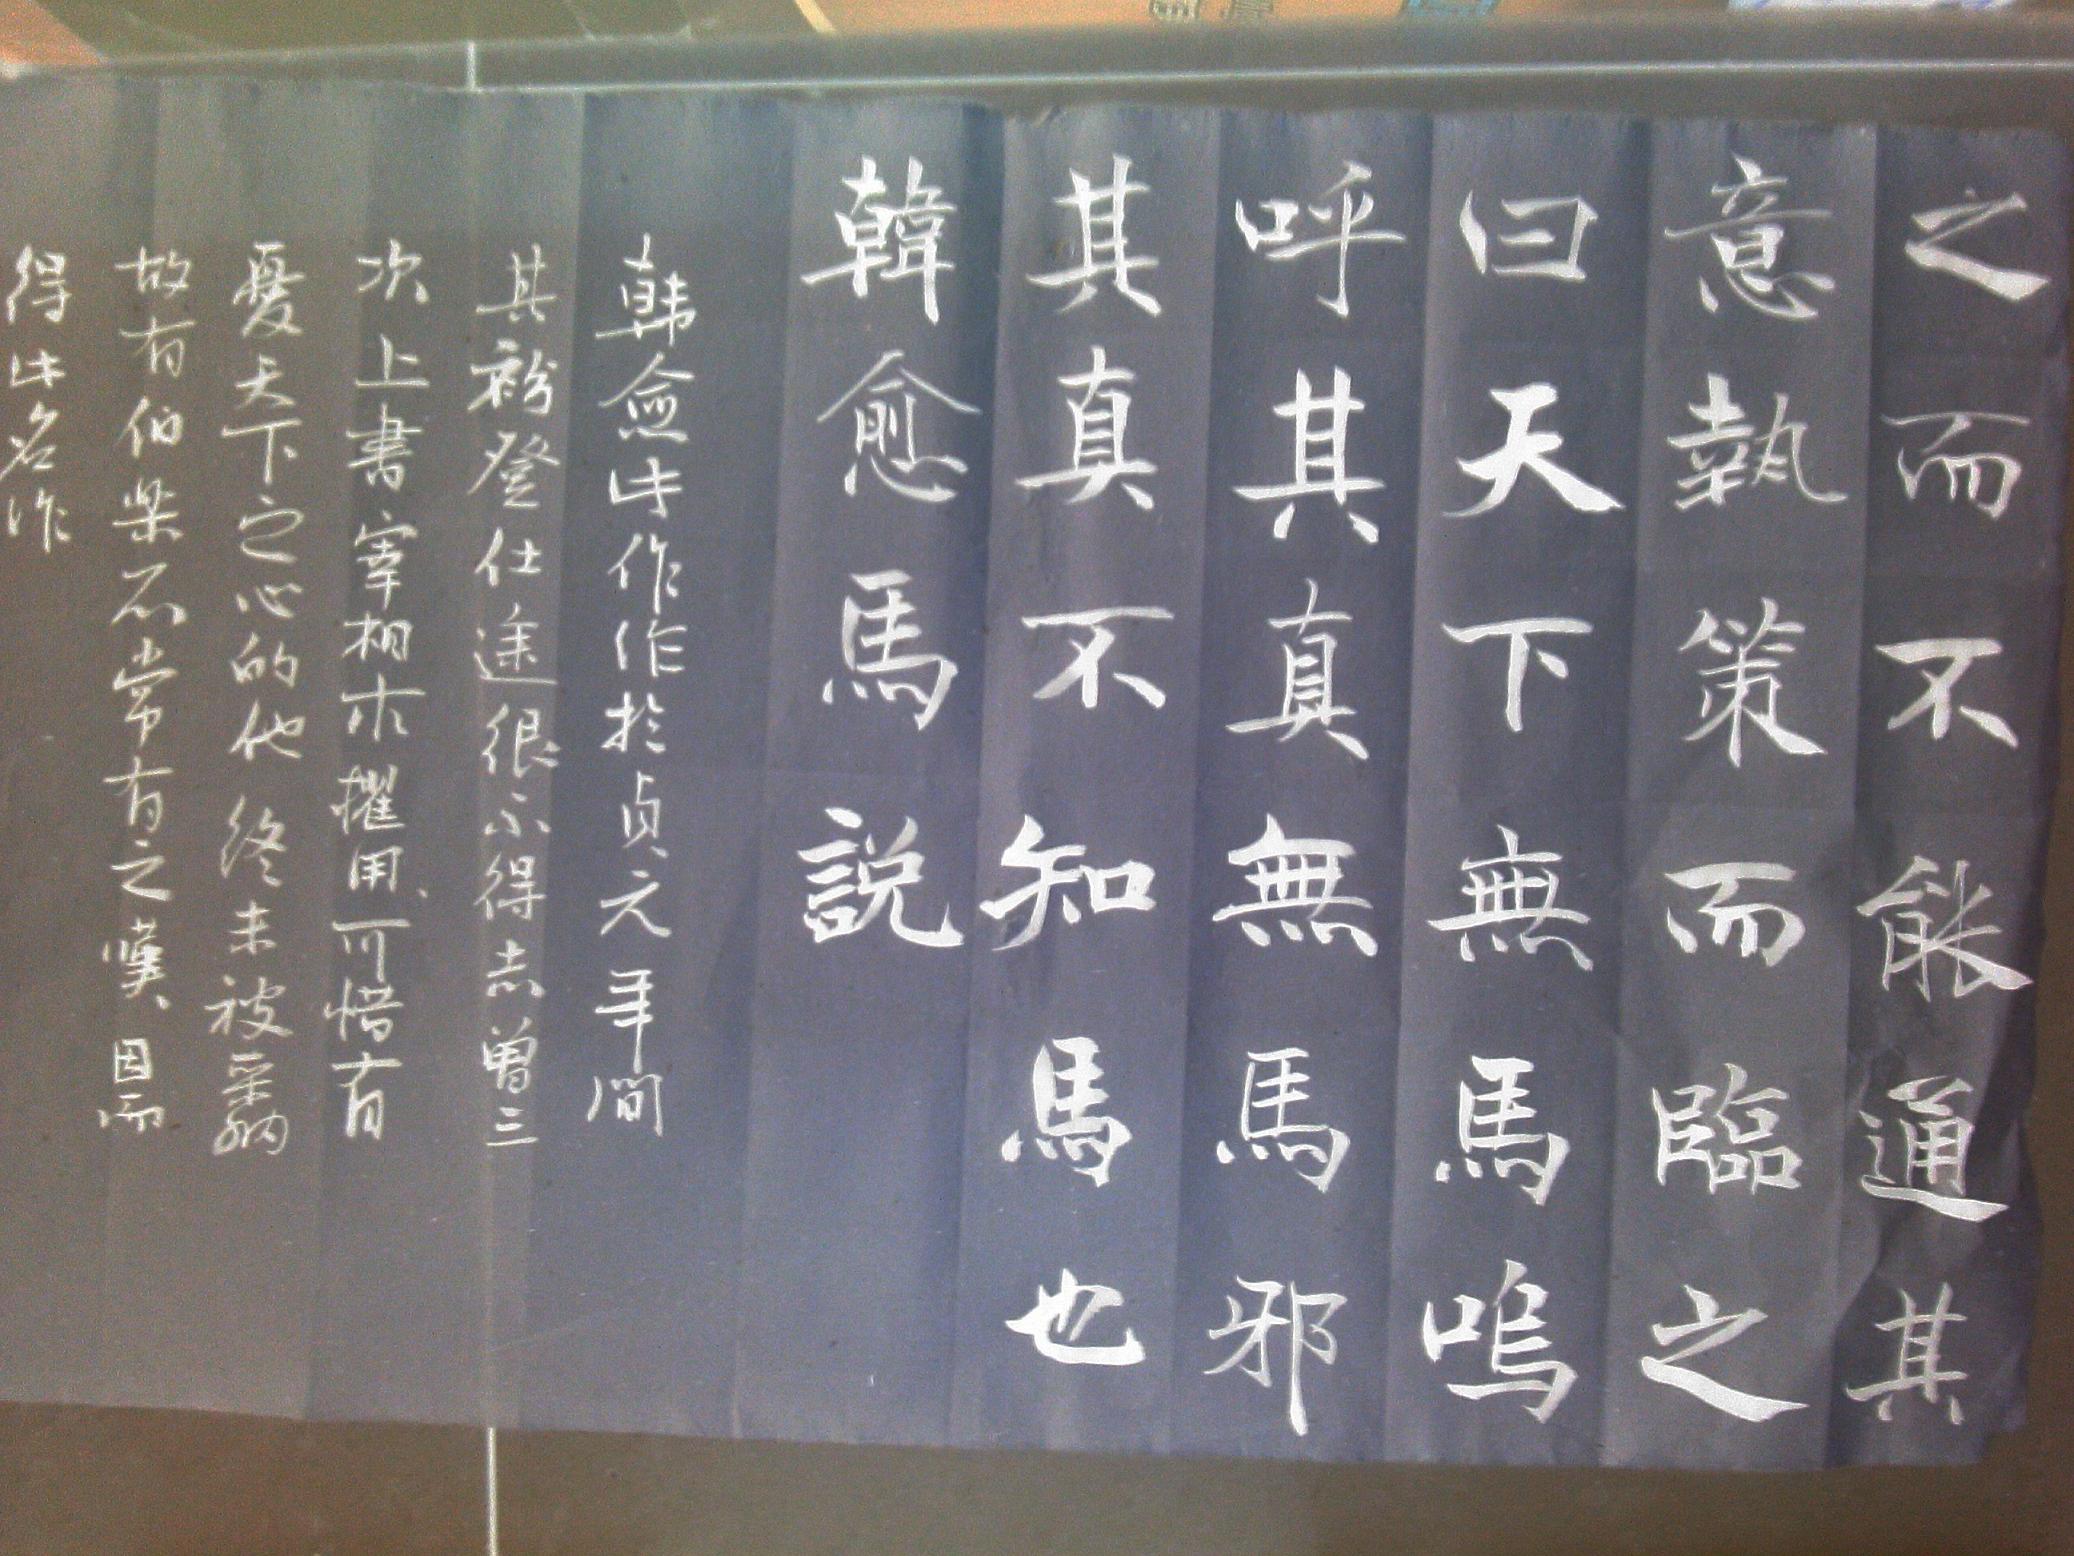 之而不能通其
意執策而臨之
曰天下無馬嗚
呼其真無馬邪
其真不知馬也
韓愈馬說
韓愈此作作於貞元年間
其初登仕途很不得志曾三
次上書宰相求擢用、可惜有
憂天下之心的他終未被采納
故有伯樂不常有之嘆、因而
得此名作